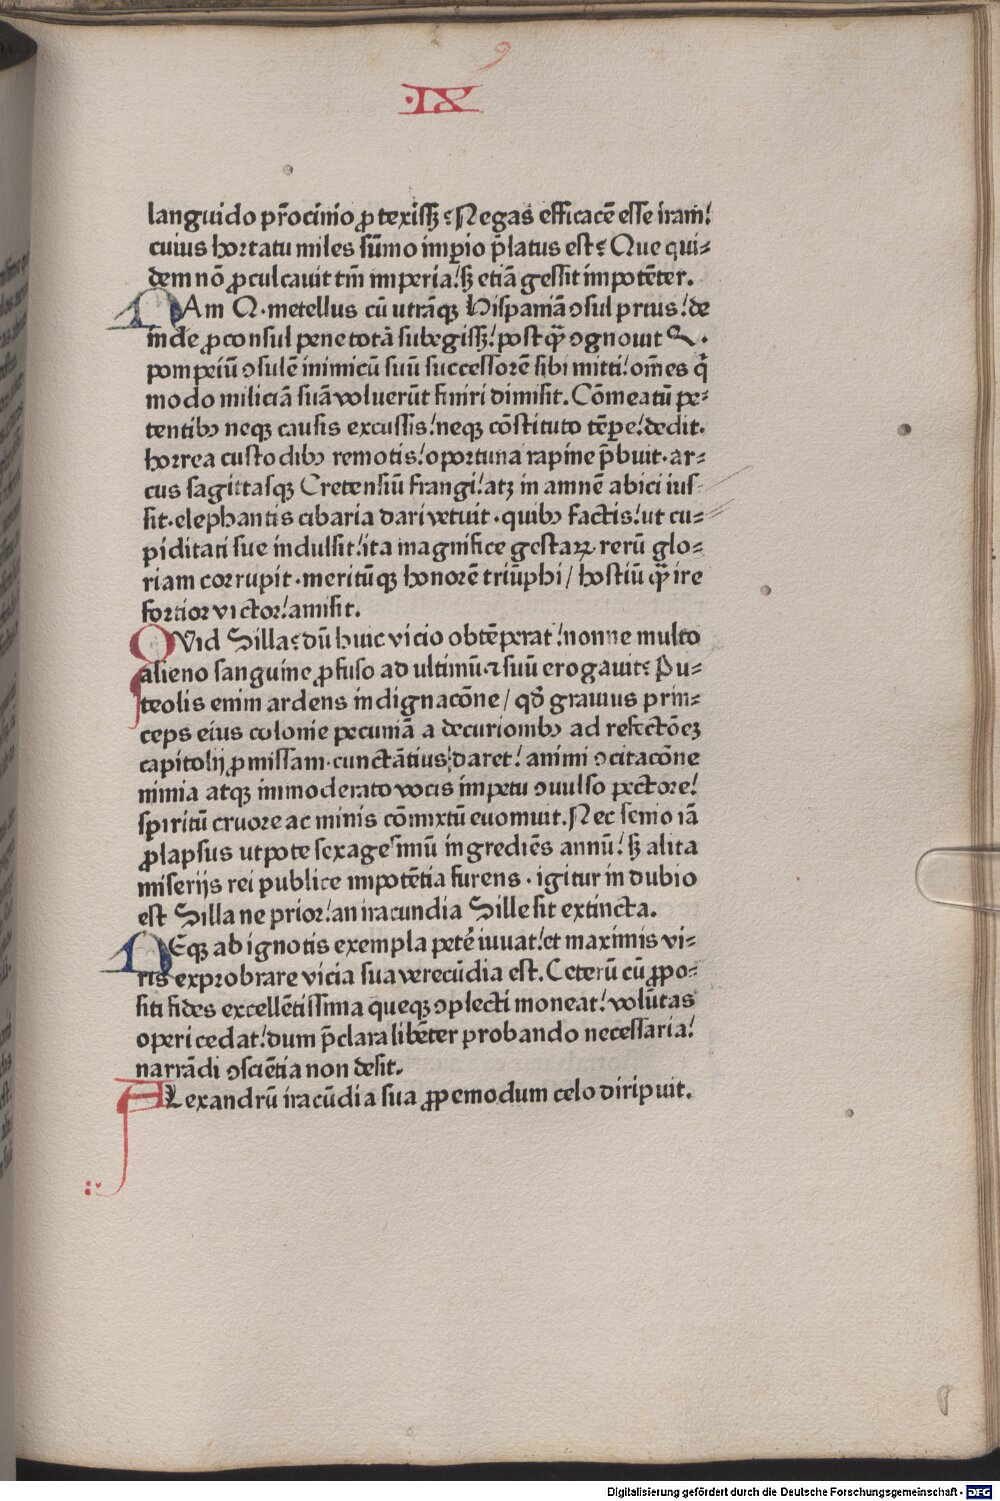 9
·IX·
languido pr̄ocinio ꝓtexisſꝫ? Negas efficacē esse iram!
cuius hortatu miles sūmo imp̲io p̄latus est? Que qui⸗
dem nō ꝓculcauit tm̄ imperia! sꝫ etiā gessit impotēter.
NAm Q. metellus cū utrāqꝫ Hispaniā ↄsul prius! de
inde ꝓconsul pene totā subegisſꝫ! postqꝫ̄ ↄgnouit Q.
pompeiū ↄsulē inimicū suū successorē sibi mitti! om̄es q̄
modo miliciā suā voluerūt finiri dimisit. Cōmeatū pe⸗
tentibꝰ neqꝫ causis excussis! neqꝫ cōstituto tēp̲e! dedit.
horrea custodibꝰ remotis! oportuna rapine p̄buit. ar⸗
cus sagittasqꝫ Cretensiū frangi! atqꝫ in amnē abici ius
sit. elephantis cibaria dari vetuit. quibꝰ factis! ut cu⸗
piditati sue indulsit! ita magnifice gestaꝝ rerū glo⸗
riam corrupit. meritūqꝫ honorē triūphi / hostiū qꝫ̄ ire
fortior victor! amisit.
QVid Silla? dū huic vicio obtēperat! nonne multo
alieno sanguine ꝓfuso ad ultimū ⁊ suū erogauit? Pu⸗
teolis enim ardens indignacōne / qd̄ granius prin⸗
ceps eius colonie pecuniā a decurionibꝰ ad refectōeꝫ
capitolij ꝓmissam. cunctātius daret! animi ↄcitacōne
nimia atqꝫ immoderato vocis impetu ↄuulso pectore!
spiritū cruore ac minis cōmixtū euomuit. Nec senio iā
ꝓlapsus utpote sexagesimū ingrediēs annū! sꝫ alita
miserijs rei publice impotētia furens. igitur in dubio
est Silla ne prior! an iracundia Sille sit extincta.
NEqꝫ ab ignotis exempla petē iuuat! et maximis vi⸗
ris exprobrare vicia sua verecūdia est. Ceterū cū ꝓpo⸗
siti fides excellētissima queqꝫ ↄplecti moneat! volūtas
operi cedat! dum p̄clara libēter probando necessaria!
narrādi ↄsciētia non desit.
ALexandrū iracūdia sua ꝓpemodum celo diripuit.
Digitalisierung gefördert durch die Deutsche Forschungsgemeinschaft - DFG